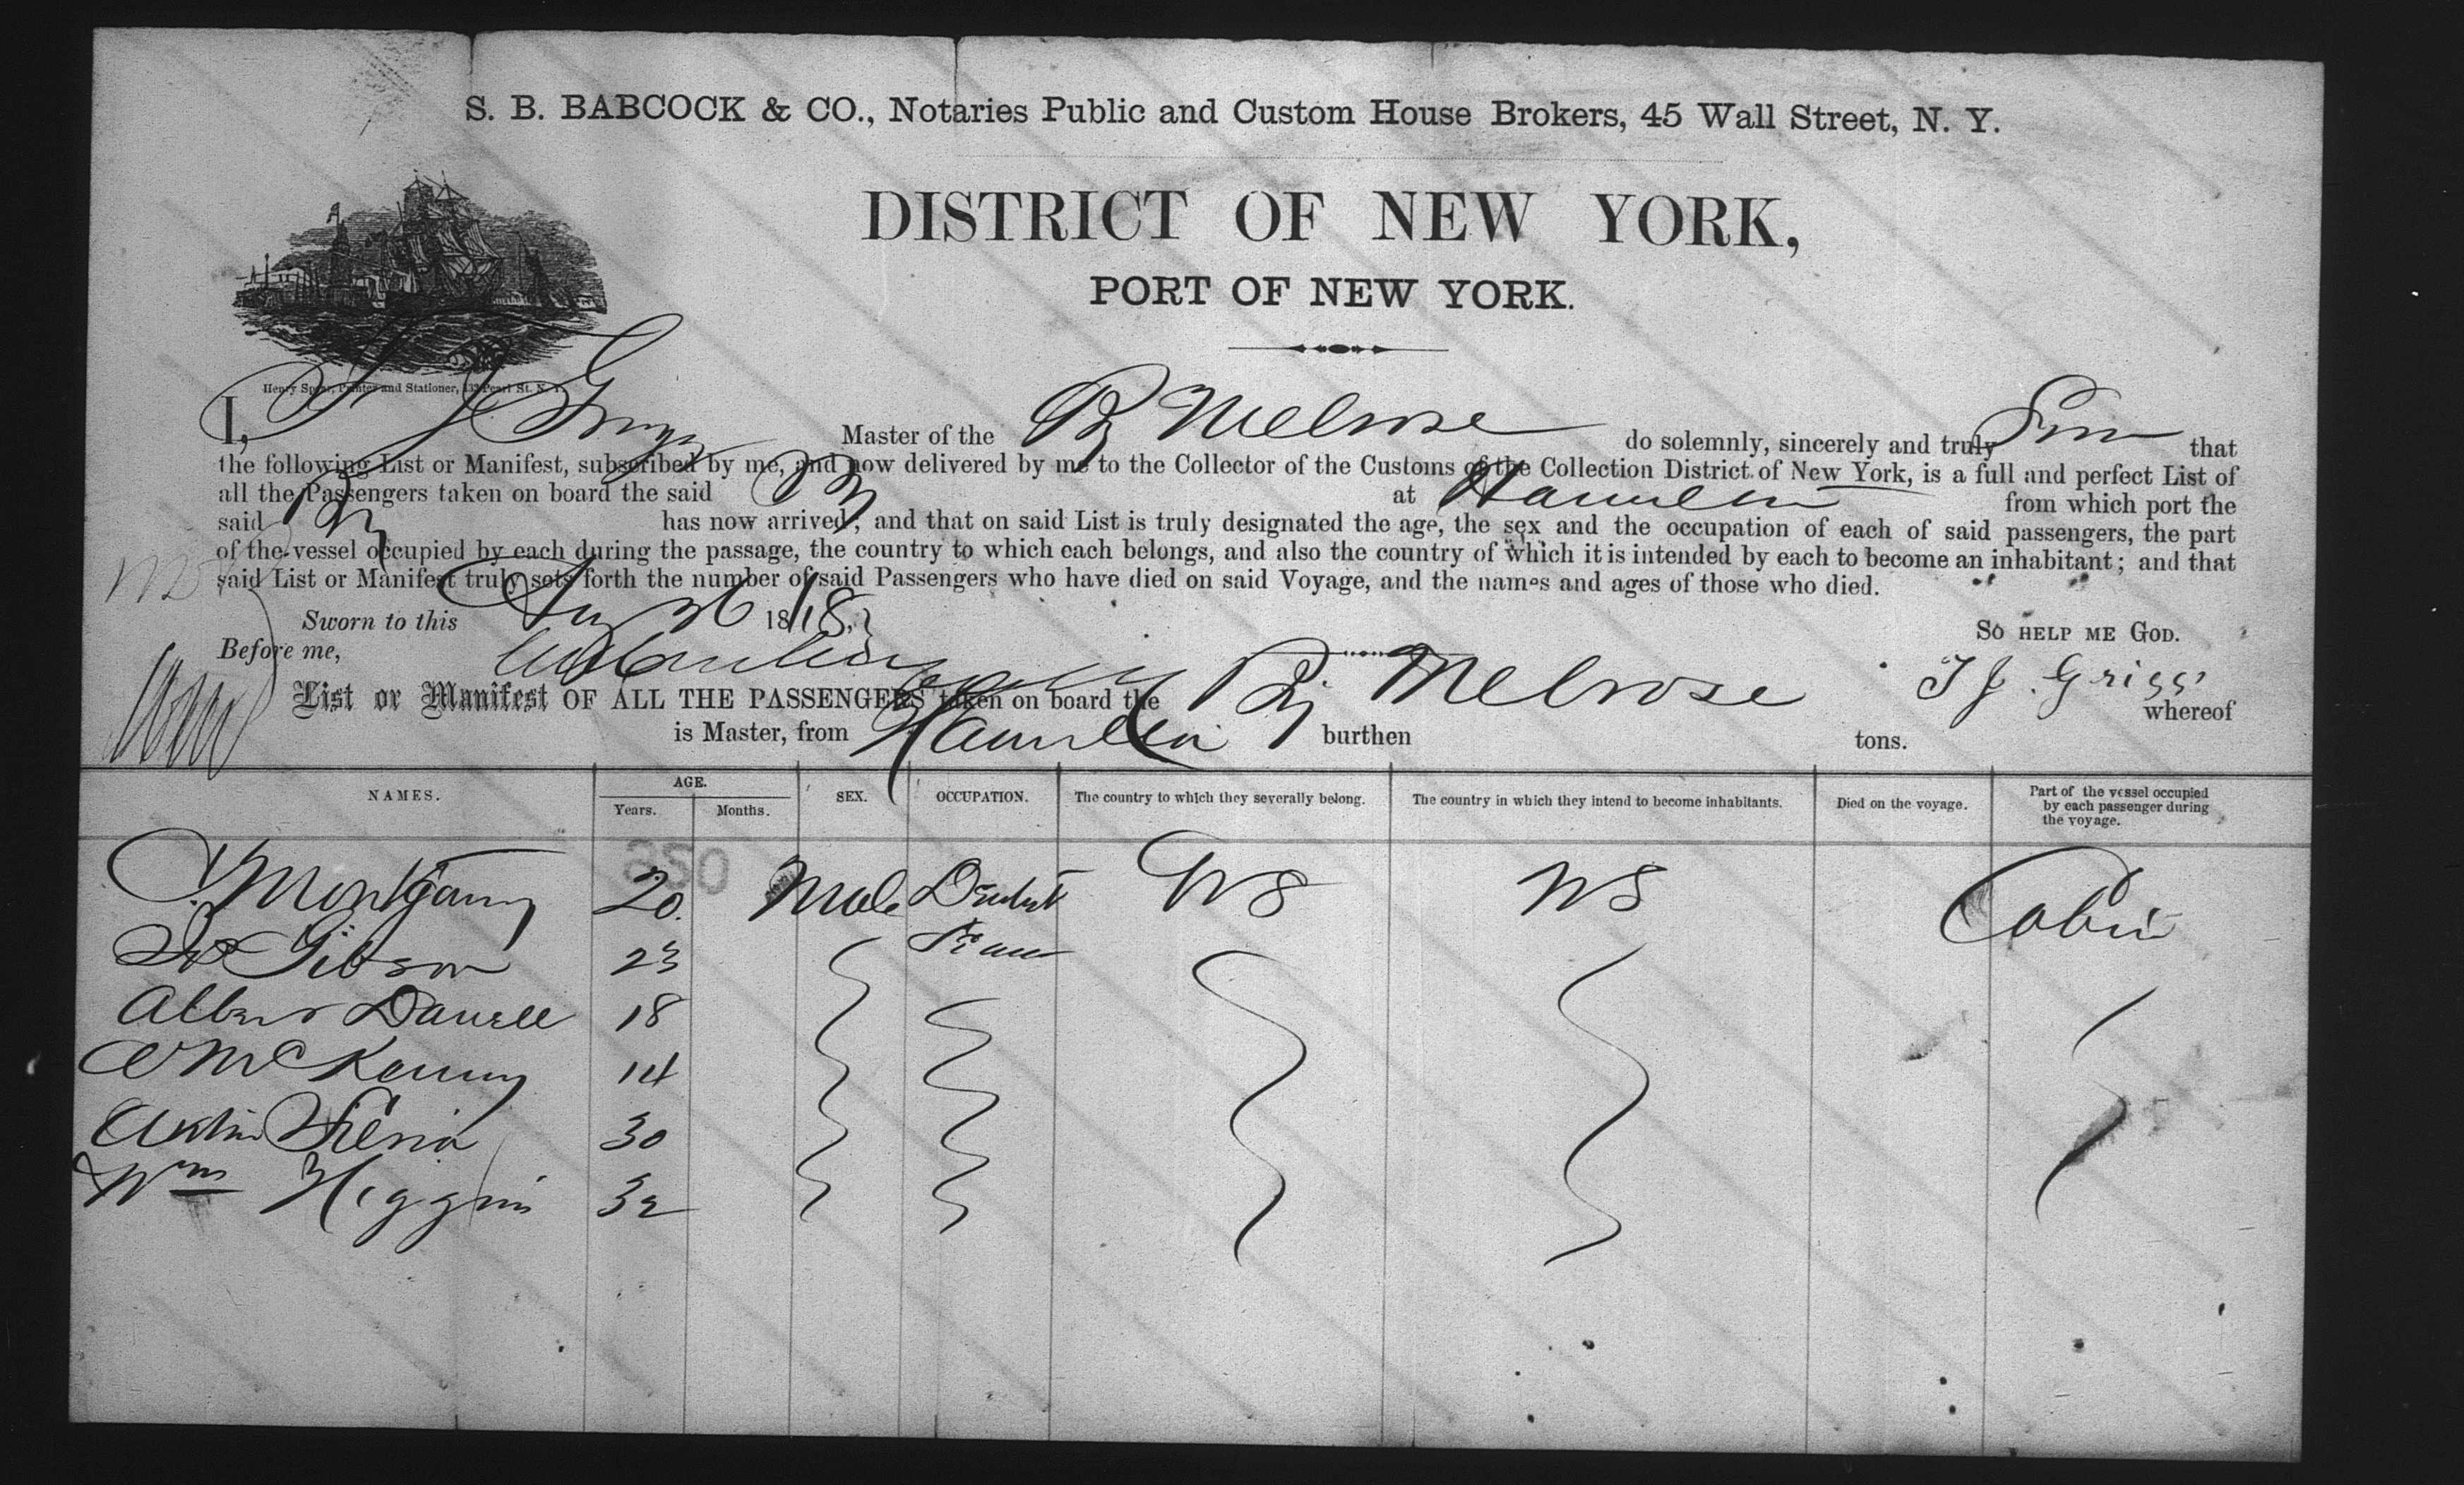 S. B. BABCOCK & CO., Notaries Public and Custom House Brokers, 45 Wall Street, N. Y.
DISTRICT OF NEW YORK,
PORT OF NEW YORK.
Henry Spear, Printer and Stationer, 133 Pearl St. N. Y.
I, T J Griggs Master of the Bg Melrose do solemnly, sincerely and truly that
the following List or Manifest, subscribed by me, and now delivered by me to the Collector of the Customs of the Collection District of New York, is a full and perfect List of
all the Passengers taken on board the said Bg at Hamilton from which port the
said Bg has now arrived; and that on said List is truly designated the age, the sex and the occupation of each of said passengers, the part
of the vessel occupied by each during the passage, the country to which each belongs, and also the country of which it is intended by each to become an inhabitant; and that
said List or Manifest truly sets forth the number of said Passengers who have died on said Voyage, and the names and ages of those who died.
Sworn to this Aug 26 18 SO HELP ME GOD.
Before me, T J. Griggs
List or Manifest OF ALL THE PASSENGERS taken on board the Bg Melrose whereof
is Master, from Hamilton burthen tons.
NAMES. AGE. Years. Months. SEX. OCCUPATION. The country to which they severally belong. The country in which they intend to become inhabitants. Died on the voyage. Part of the vessel occupied by each passenger during the voyage.
Montgomy 20. Male US US Cabin
Gibson 23
Albert Darrell 18
McKenny 14
30
Wm Higgins 32